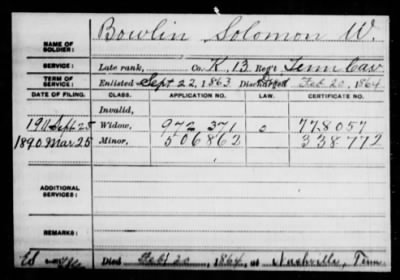 NAME OF SOLDIER: Bowlin Solomon W.
SERVICE: Late rank, Co. K, 13 Reg't Tenn Cav
TERM OF SERVICE: Enlisted Sept 22, 1863 Discharged Died Feb 20, 1864
DATE OF FILING. CLASS. APPLICATION NO. LAW. CERTIFICATE NO.
Invalid,
1911 Sept 25 Widow, 972 371 778057
1890 Mar 25 Minor, 506862 338772
ADDITIONAL SERVICES:
REMARKS:
Died Feb 20, 1864, at Nashville, Tenn.